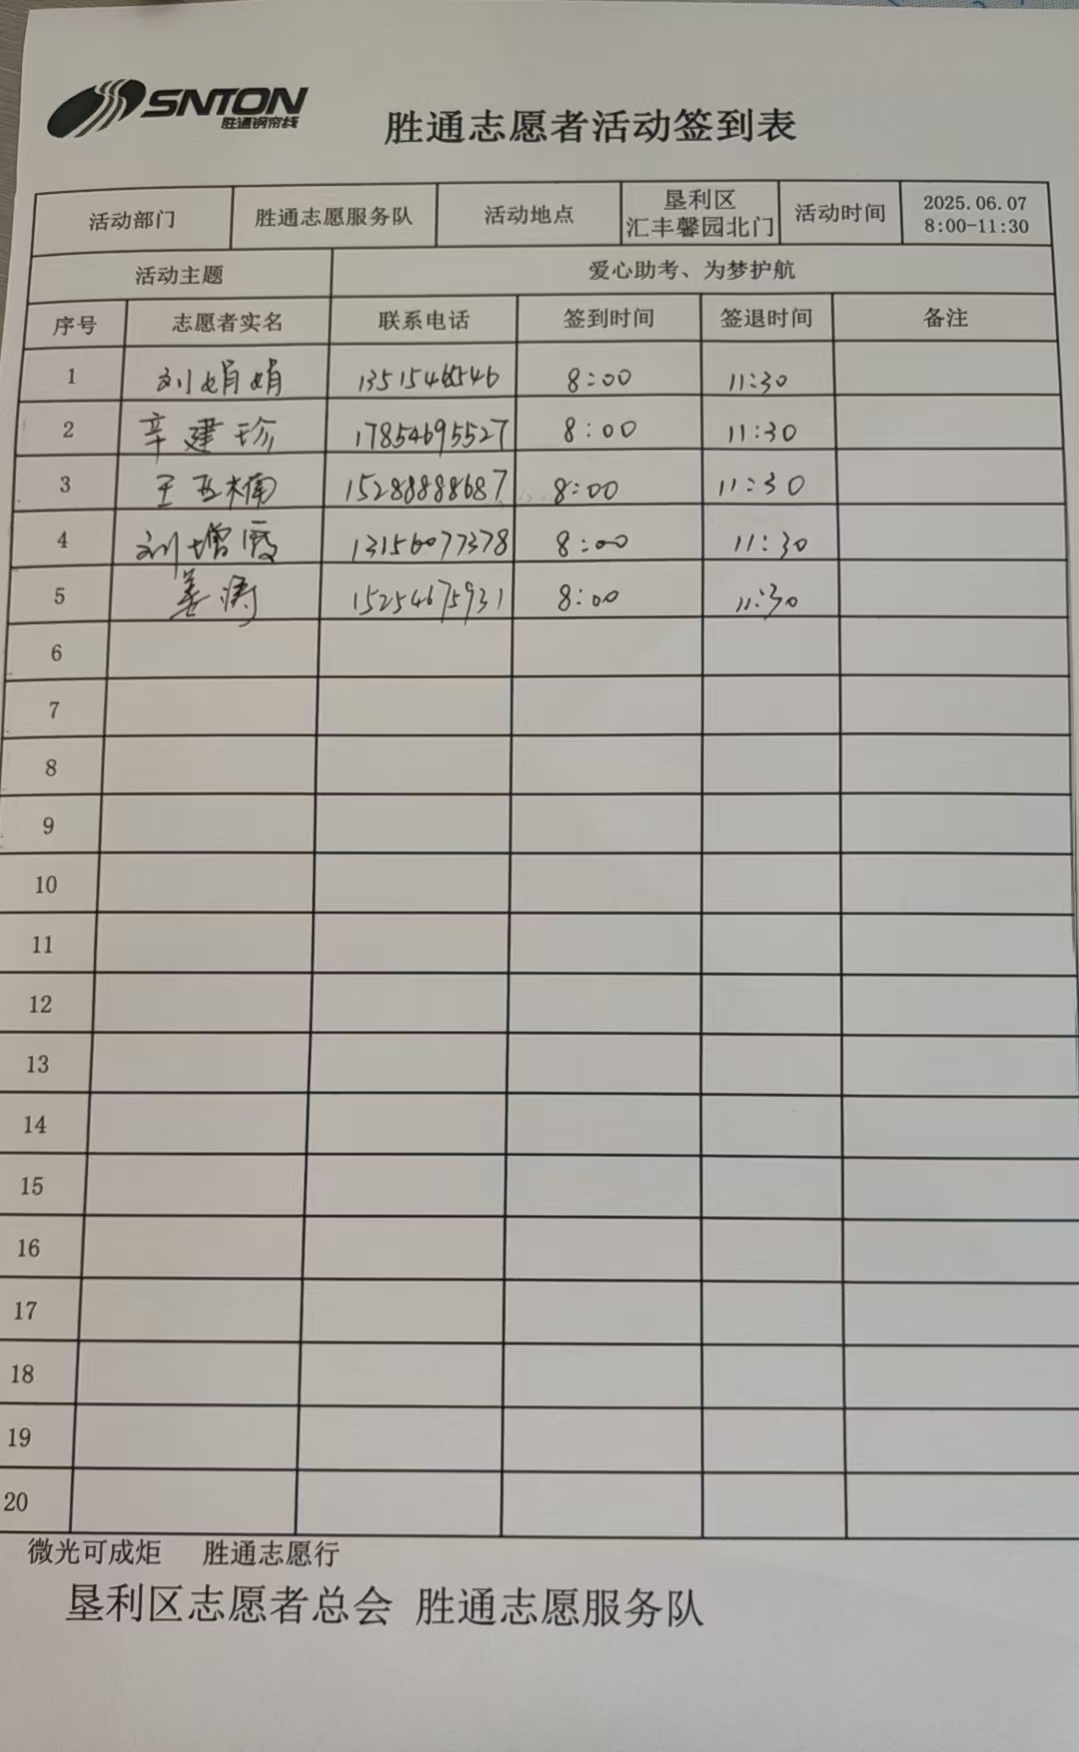 SNTON
胜通钢帘线
胜通志愿者活动签到表
活动部门 胜通志愿服务队 活动地点 垦利区 汇丰馨园北门 活动时间 2025.06.07 8:00-11:30
活动主题 爱心助考、为梦护航
序号 志愿者实名 联系电话 签到时间 签退时间 备注
1 刘娟娟 8:00 11:30
2 辛建珍 17854695527 8:00 11:30
3 王亚楠 15288888687 8:00 11:30
4 刘增霞 13156077378 8:00 11:30
5 姜涛 15254675931 8:00 11:30
6
7
8
9
10
11
12
13
14
15
16
17
18
19
20
微光可成炬 胜通志愿行
垦利区志愿者总会 胜通志愿服务队